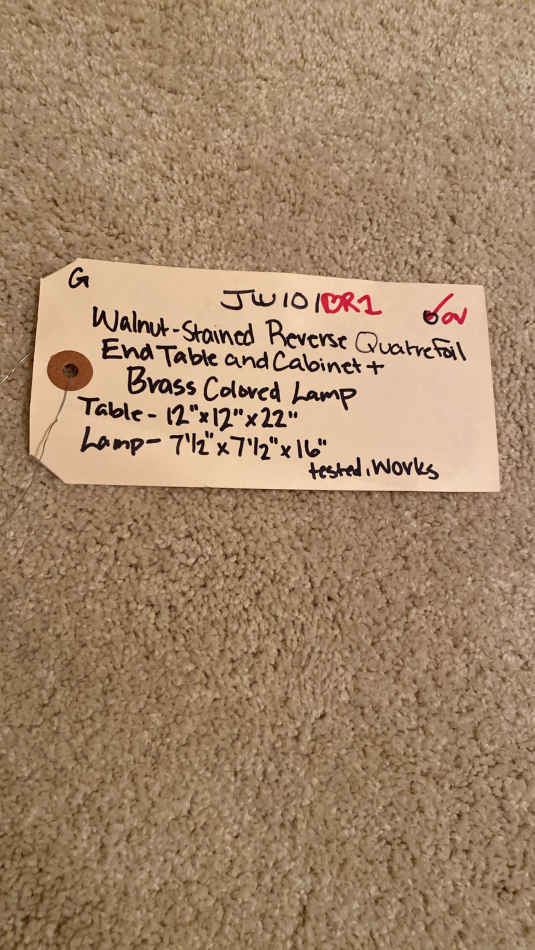 G
JW101 DR1
Walnut-Stained Reverse Quatrefoil
End Table and Cabinet +
Brass Colored Lamp
Table- 12"x12"x22"
Lamp- 7 1/2"x7 1/2"x16"
tested, Works